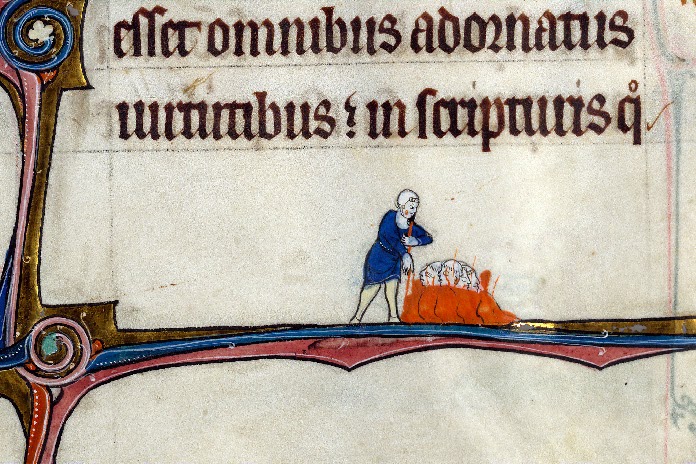 esset omnibus adornatus
uirtutibus ; in scripturis q̊